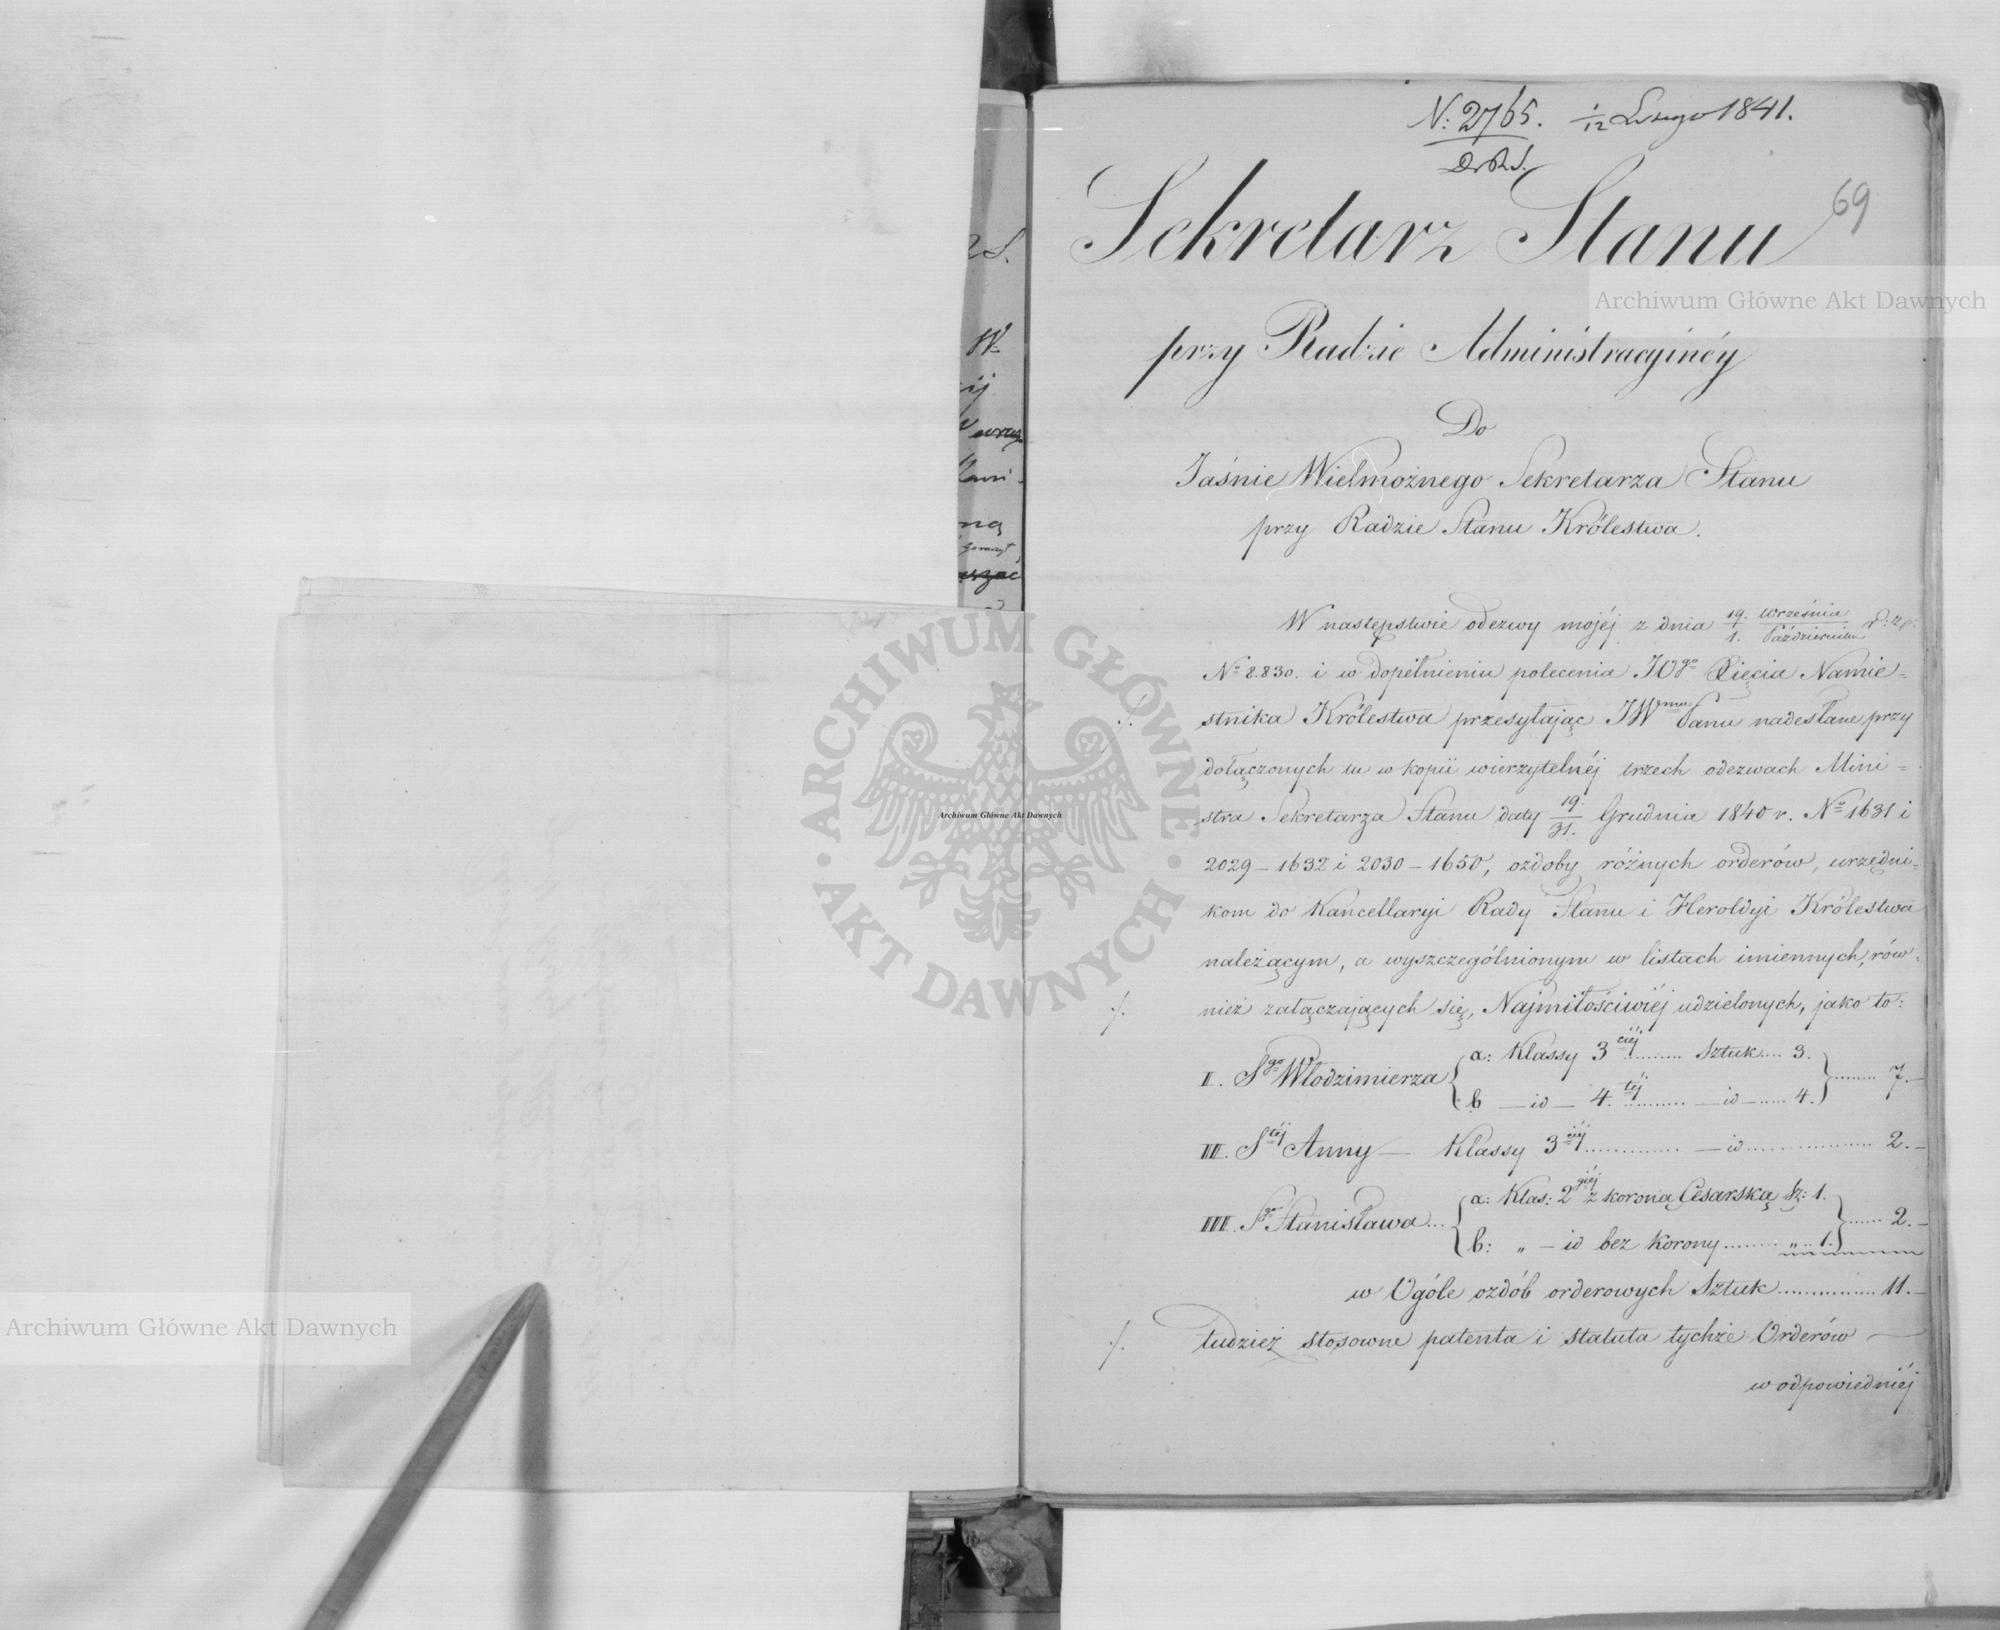 N: 2765. 1/12 Lutego 1841.
D. R. S.
69
Sekretarz Stanu
przy Radzie Administracyinéy
Do
Jaśnie Wielmożnego Sekretarza Stanu
przy Radzie Stanu Królestwa.
W następstwie odezwy mojéj z dnia 19. Września / 1. Października
No 8.830. i w dopełnieniu polecenia JOgo Xięcia Namie=
stnika Królestwa przesyłając JWmu Panu nadesłane przy
dołączonych tu w kopii wierzytelnéj trzech odezwach Mini=
stra Sekretarza Stanu daty 19/31. Grudnia 1840 r. No 1631 i
2029 – 1632 i 2030 – 1650, ozdoby różnych orderów, urzędni=
kom do Kancellaryi Rady Stanu i Heroldyi Królestwa
należącym, a wyszczególnionym w listach imiennych, rów=
./. nież załączających się, Najmiłościwiéj udzielonych, jako to:
I. Sgo Włodzimierza { a: Klassy 3ciéj ......... Sztuk.... 3. } ........ 7.–
b – id – 4.téj .......... – id – ..... 4.
II. Stéj Anny – Klassy 3ciéj ............. – id .................. 2.–
III. Sgo Stanisława... { a: Klas: 2giéj z koroną Cesarską Sz: 1. } ...... 2.–
b: „ – id bez Korony ........ „ .. 1.
w Ogóle ozdób orderowych Sztuk ............... 11.–
./. tudzież stosowne patenta i statuta tychże Orderów –
w odpowiedniéj
2 S.
W.
ną
Archiwum Główne Akt Dawnych
Archiwum Główne Akt Dawnych
Archiwum Główne Akt Dawnych
ARCHIWUM GŁÓWNE · AKT DAWNYCH ·